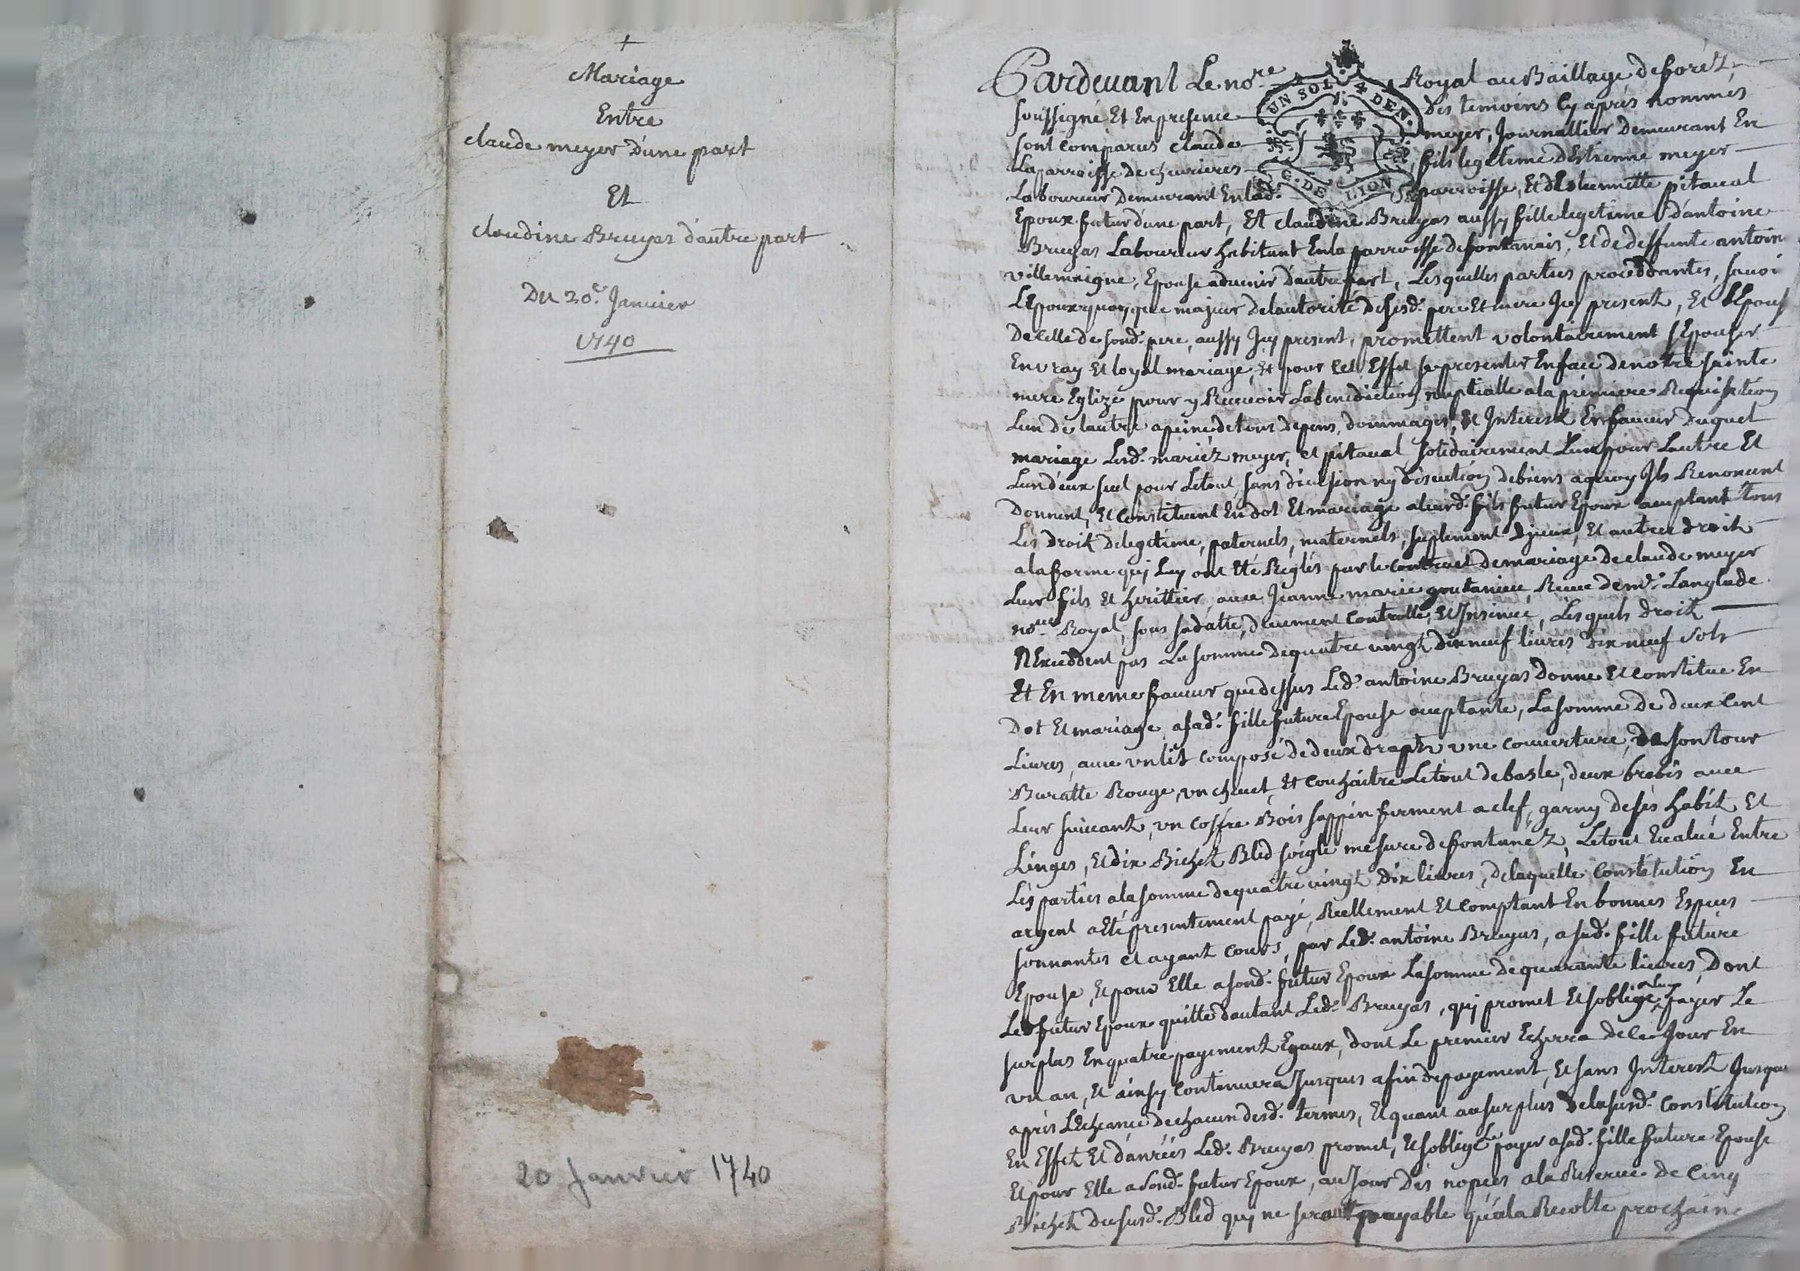 +
Mariage
Entre
claude meyer d'une part
Et
claudine Bruyas d'autre part
Du 20e. Janvier
1740
20 Janvier 1740
Pardevant Le nore Royal au Baillage deforéz,
UN SOL 4 DEN.
G. DE LION
soussigné Et En presence des temoins Cy aprés nommés
sont comparus claude meyer, Journallier Demeurant En
La parroisse de chevrieres fils legetime d'Estienne meyer
Laboureur Demeurant En lad. parroisse, Et d'Estiennette pitaval
Epoux futur dune part, Et claudine Bruyas aussy fille legetime d'antoine
Bruyas Laboureur habitant En la parroisse defontanais, Et de deffunte antoin
villemaigne, Epouse advenir d'autre part, Lesquelles parties proceddantes, scavoi
L'Epoux quoyque majeur de lautorité de sesd. pere Et mere Icy present, Et LEpous
De celle de sond. pere, aussy Icy present, promettent volontairement sEpouser
En vray Et loyal mariage, Et pour cet Effet se presenter En face de notre sainte
mere Eglize pour y Recevoir La benediction nuptialle a la premiere Requisition
Lun de lautre a peine de tous depens, dommages, Et Interest En faveur duquel
mariage Lesd. mariéz meyer, et pitaval solidairement Lun pour Lautre Et
Lun d'eux seul pour Le tout sans division ny discution de biens a quoy Ils Renoncent
Donnent, Et constituent En dot Et mariage aleurd. fils futur Epoux acceptant tous
Les droit de legetime, paternels, maternels, suplement dyceux, Et autres droit
a la forme quj Luy ont Eté Réglés par le contract de mariage de claude meyer
Leur fils Et herittier, avec Jeanne marie goutanieu, Receu de me. Langlade
nore. Royal, sous sa datte, deuement Controllé, Et Insinué, Lesquels droit
NExceddent pas La somme de quatre vingt dixneuf livres dixneuf sols
Et En meme faveur que dessus Led. antoine Bruyas Donne Et constitue En
Dot Et mariage a sad. fille future Epouse acceptante, La somme De deux Cent
Livres, avec un lit composé de deux draps, une couverture, de son tour
Buratte Rouge, un chevet, Et couhaitre Le tout de basle, deux brebis avec
Leur suivant, un coffre Bois sappin fermant a clef, garny de ses habit Et
Linges, Et dix Bichet Bled soigle mesure defontanéz, Le tout Evalué Entre
Les parties a la somme de quatre vingt dix livres, de laquelle Constitution En
argent a eté presentement payé, Reellement Et comptant En bonnes Especes
sonnantes et ayant cours, par Led. antoine Bruyas, a sad. fille future
Epouse, Et pour Elle a sond. futur Epoux La somme de quarante livres, Dont
Led futur Epoux quitte d'autant Led. Bruyas, quj promet Et sobligé aluy payer Le
surplus En quatre payement Egaux, dont Le premier Echerra de ce Jour En
un an, Et ainsy Continuera Jusques a fin de payement, Et sans Interest Jusqu
aprés LEcheance de chacun desd. termes, Et quant au surplus de la susd. Constitution
En Effet Et danréés Led. Bruyas promet, Et soblige Le payer a sad. fille future Epouse
Et pour Elle a sond. futur Epoux, au Jour Des nopces a la Reserve de Cinq
Bichet du susd. Bled quj ne seront payable qu'a la Recolte prochaine